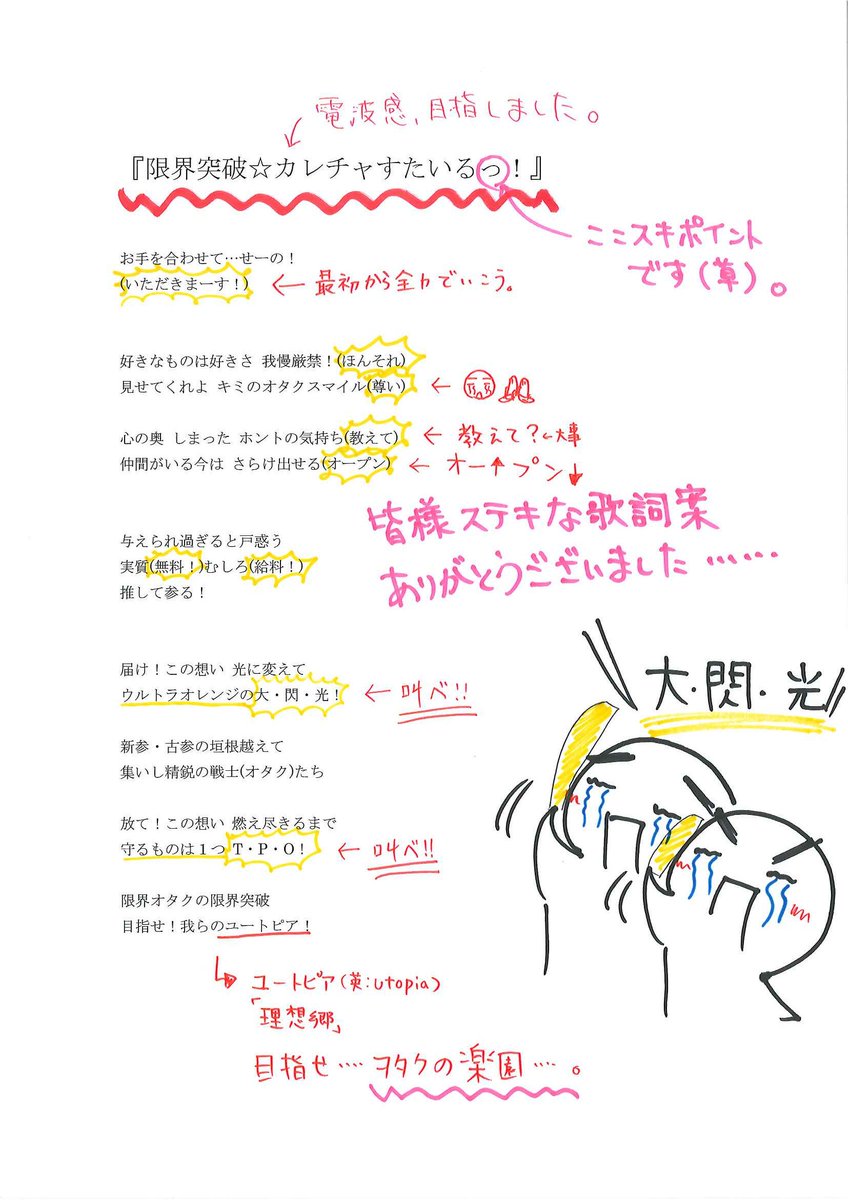 電波感、目指しました。
『限界突破☆カレチャすたいるっ！』
ここスキポイント
です(草)。
お手を合わせて…せーの！
(いただきまーす！) ← 最初から全力でいこう。
好きなものは好きさ 我慢厳禁！(ほんそれ)
見せてくれよ キミのオタクスマイル(尊い) ←
心の奥 しまった ホントの気持ち(教えて) ← 教えて？←大事
仲間がいる今は さらけ出せる(オープン) ← オー↑プン↓
皆様ステキな歌詞案
ありがとうございました……
与えられ過ぎると戸惑う
実質(無料！)むしろ(給料！)
推して参る！
届け！この想い 光に変えて
ウルトラオレンジの大・閃・光！ ← 叫べ!!
大・閃・光
新参・古参の垣根越えて
集いし精鋭の戦士(オタク)たち
放て！この想い 燃え尽きるまで
守るものは１つ Ｔ・Ｐ・Ｏ！ ← 叫べ!!
限界オタクの限界突破
目指せ！我らのユートピア！
ユートピア(英:utopia)
「理想郷」
目指せ…‥ヲタクの楽園…‥。